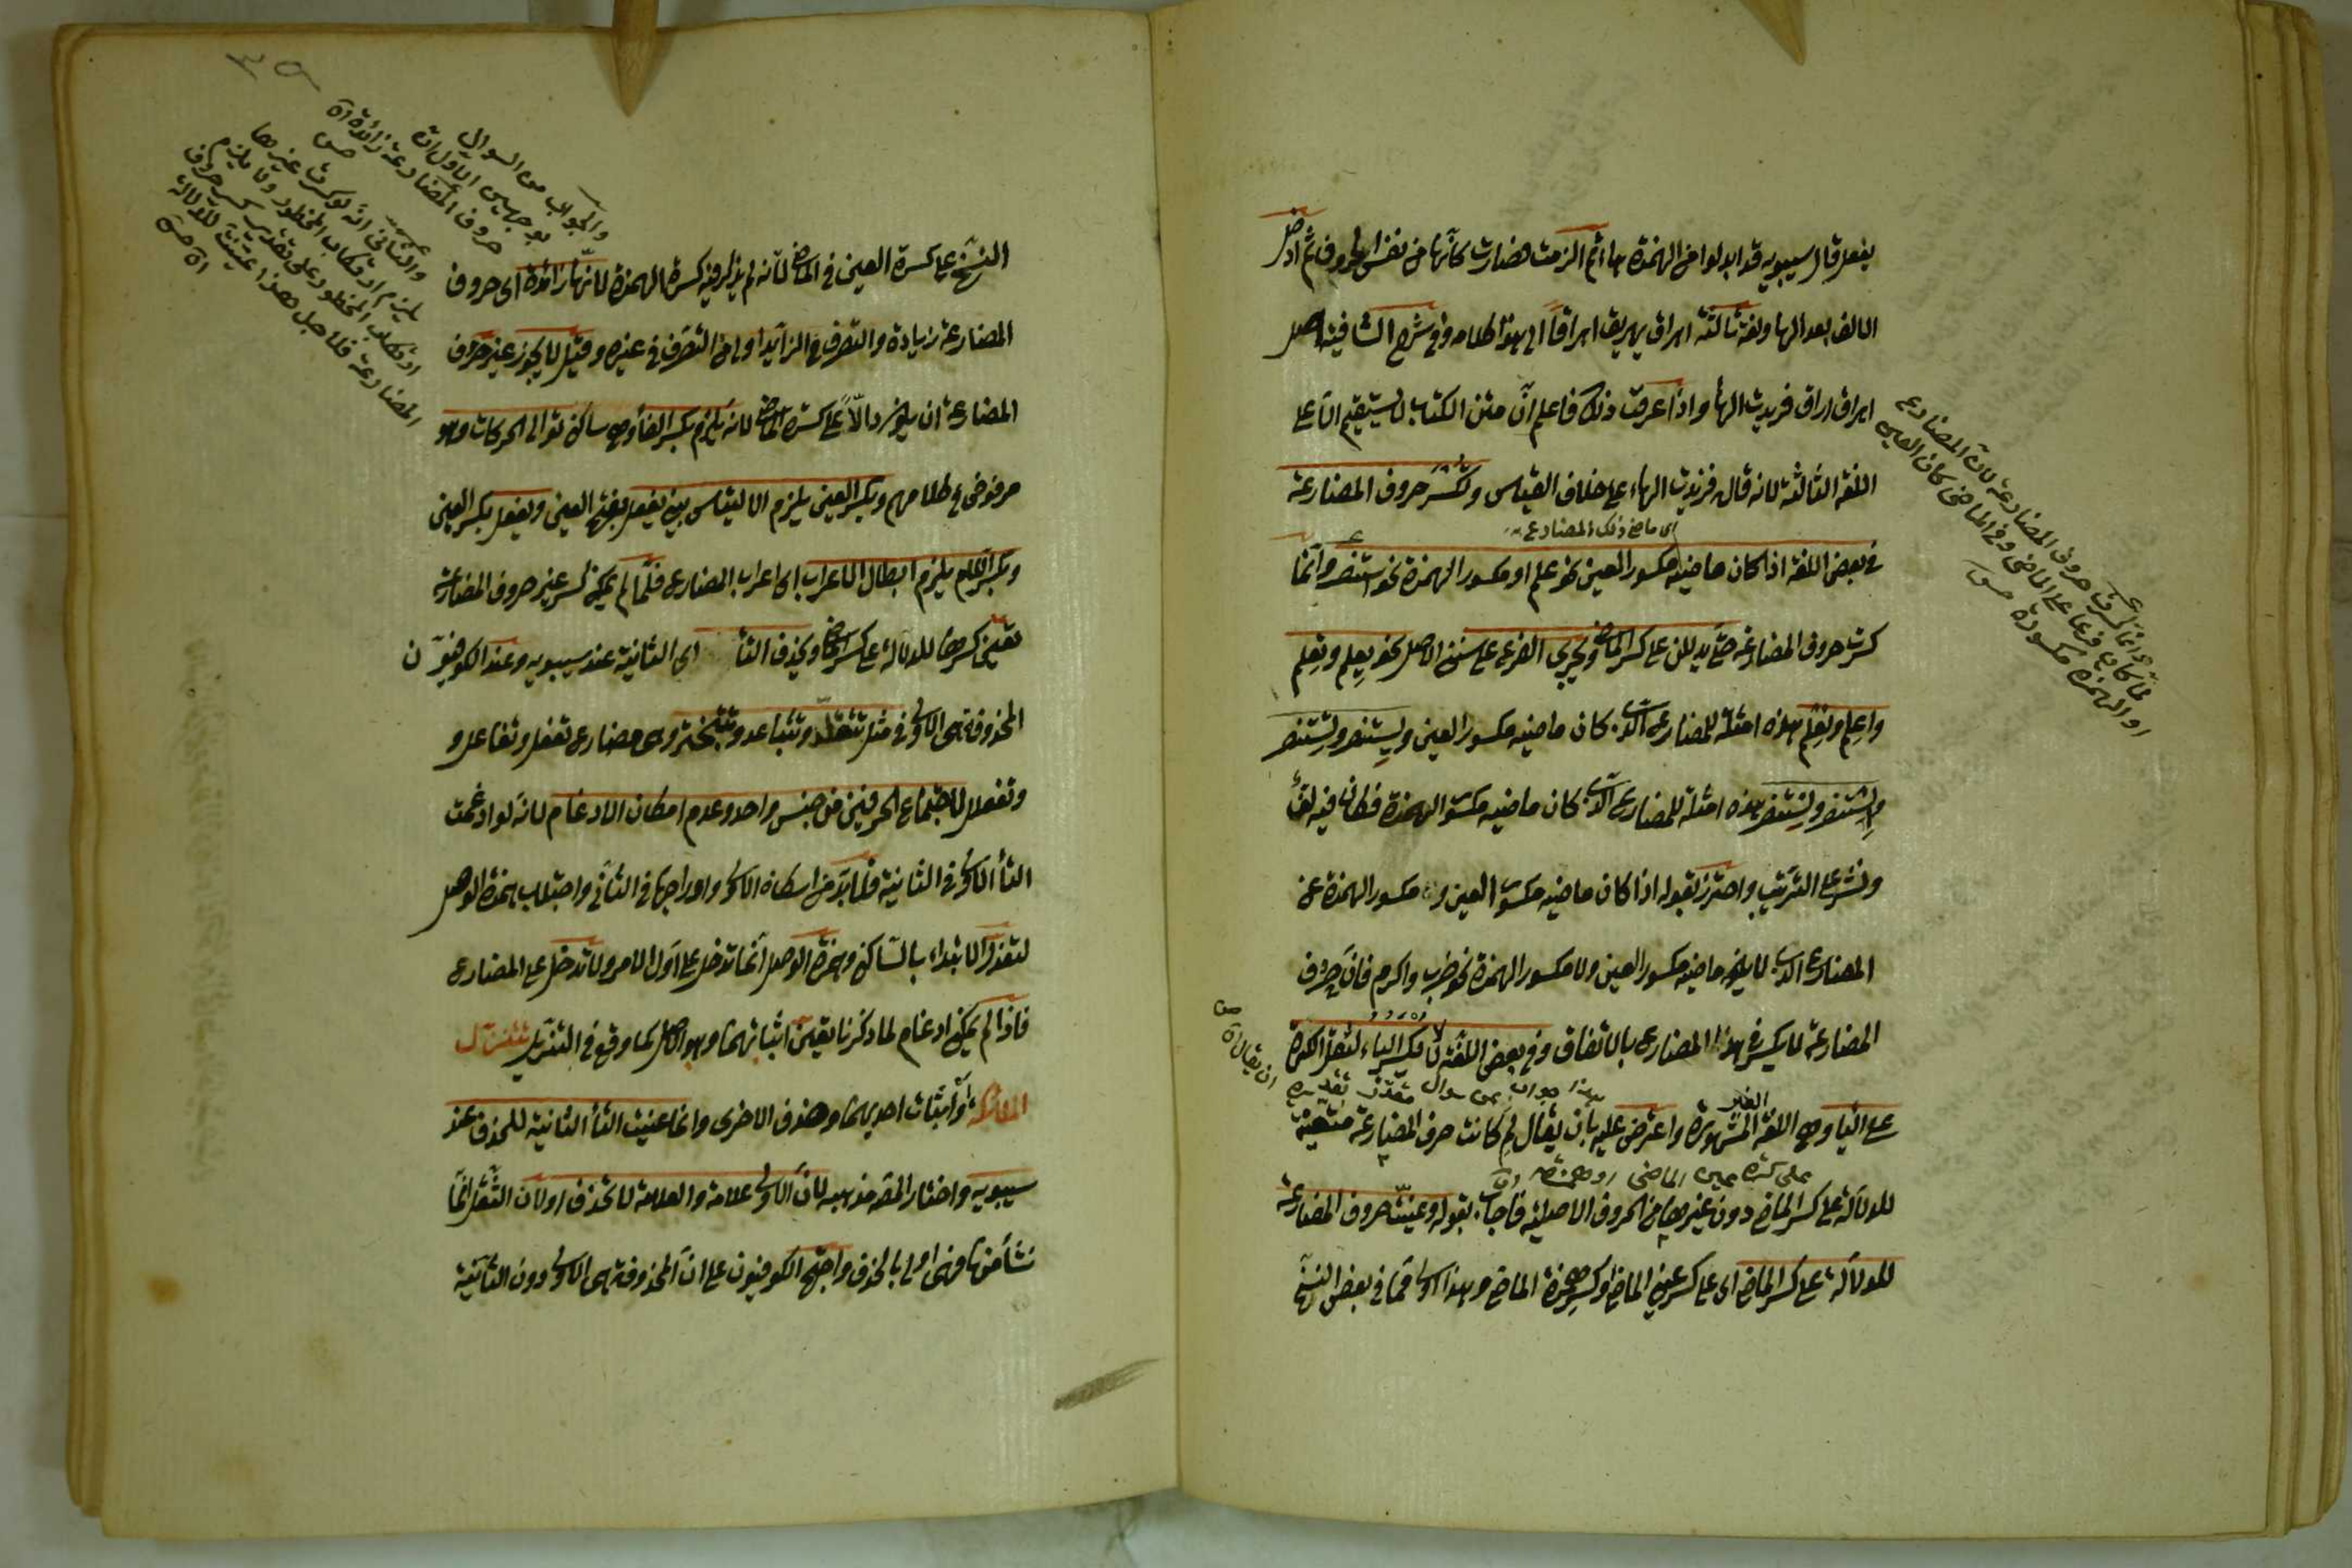 يفعل قال سيبويه قد ابدلوا من الهمزة هاء ثم الزمت فصارت كأنها من نفس الحروف ثم ادخل
الالف بعد الهاء ولغة ثالثة اهراق يهريق اهراقا الى هذا كلامه وفي شرح الشافية اصل
اهراق اراق فزيدت الهاء واذا عرفت ذلك فاعلم ان متن الكتاب لا يستقيم الا على
اللغة الثالثة لانه قال فزيدت الهاء على خلاف القياس وتكسر حروف المضارعة
اى ماضى ذلك المضارع
في بعض اللغة اذا كان ماضيه مكسور العين نحو علم او مكسور الهمزة نحو استنصر وانما
كسرت حروف المضارعة حتى يدلن على كسر الماضى ويجرى الفرع على سنن الاصل نحو يعلم وتعلم
واعلم ونعلم هذه امثلة للمضارع الذى كان ماضيه مكسور العين ويستنصر وتستنصر
واستنصر ونستنصر هذه امثلة للمضارع الذى كان ماضيه مكسور الهمزة فكان فيه لف
ونشر على الترتيب واحترز بقوله اذا كان ماضيه مكسور العين او مكسور الهمزة عن
المضارع الذى لا يكون ماضيه مكسور العين ولا مكسور الهمزة نحو ضرب واكرم فان حروف
المضارعة لا يكسر في هذا المضارع بالاتفاق وفي بعض اللغة لا يكسر الياء لثقل الكسرة
هذا جواب عن سوال مقدر تقديره ان يقال
على الياء وهي اللغة الغير المشهورة واعترض عليه بان يقال لم كانت حرف المضارعة متعينة
على كسرة عين الماضى او همزته
للدلالة على كسر الماضى دون غيرها من الحروف الاصلية فاجاب بقوله وعينت حروف المضارعة
للدلالة على كسر الماضى اى على كسر عين الماضى او كسر همزة الماضى وهذا اولى مما في بعض النسخ
وانما كسرت حروف المضارعة لان المضارع
لما كان فرعا على الماضى وفي الماضى كان العين
او الهمزة مكسورة
النسخ على كسرة العين في الماضى لانه لم يذكر فيه كسرة الهمزة لانها زائدة اى حروف
المضارعة زيادة والتصرف في الزائد اولى من التصرف في غيره وقيل لا يجوز غير حروف
المضارعة ان يكون دالا على كسرة الماضى لانه يلزم بكسر الفاء وهي ساكنة توالى الحركات وهو
مرفوض في كلامهم وبكسر العين يلزم الالتباس بين يفعل بفتح العين ويفعل بكسر العين
وبكسر اللام يلزم ابطال الاعراب اى اعراب المضارع فلما لم يمكن كسر غير حروف المضارعة
تعين كسرها للدلالة على كسر الماضى ويحذف التاء اى الثانية عند سيبويه وعند الكوفيون
المحذوفة هى الاولى في مثل تتقلد وتتباعد وتتبختر وهى مضارع تفعل وتفاعل و
وتفعلل لاجتماع الحرفين من جنس واحد وعدم امكان الادغام لانه لو ادغمت
التاء الاولى في الثانية فلا بد من اسكان الاولى وادراجها في الثانى واجتلاب همزة الوصل
لتعذر الابتداء بالساكن وهمزة الوصل انما تدخل على اول الامر ولا تدخل على المضارع
فاذا لم يمكن ادغام لما ذكرنا تعين اثباتهما وهو الاصل كما وقع في التنزيل تتنزل
الملائكة او اثبات احديهما وحذف الاخرى وانما عينت التاء الثانية للحذف عند
سيبويه واختار المص مذهبه لان الاولى علامة والعلامة لا تحذف او لان الثقل انما
نشأ منها فهى اولى بالحذف واحتج الكوفيون على ان المحذوفة هى الاولى دون الثانية
والجواب من السوال
بوجهين الاول ان
حروف المضارعة زائدة
والثانى انه لو كسرت غيرها
يلزم ارتكاب المحظور ولا يلزم
ارتكاب المحظور على تقدير كسر حروف
المضارعة فلاجل هذا عينت للدلالة